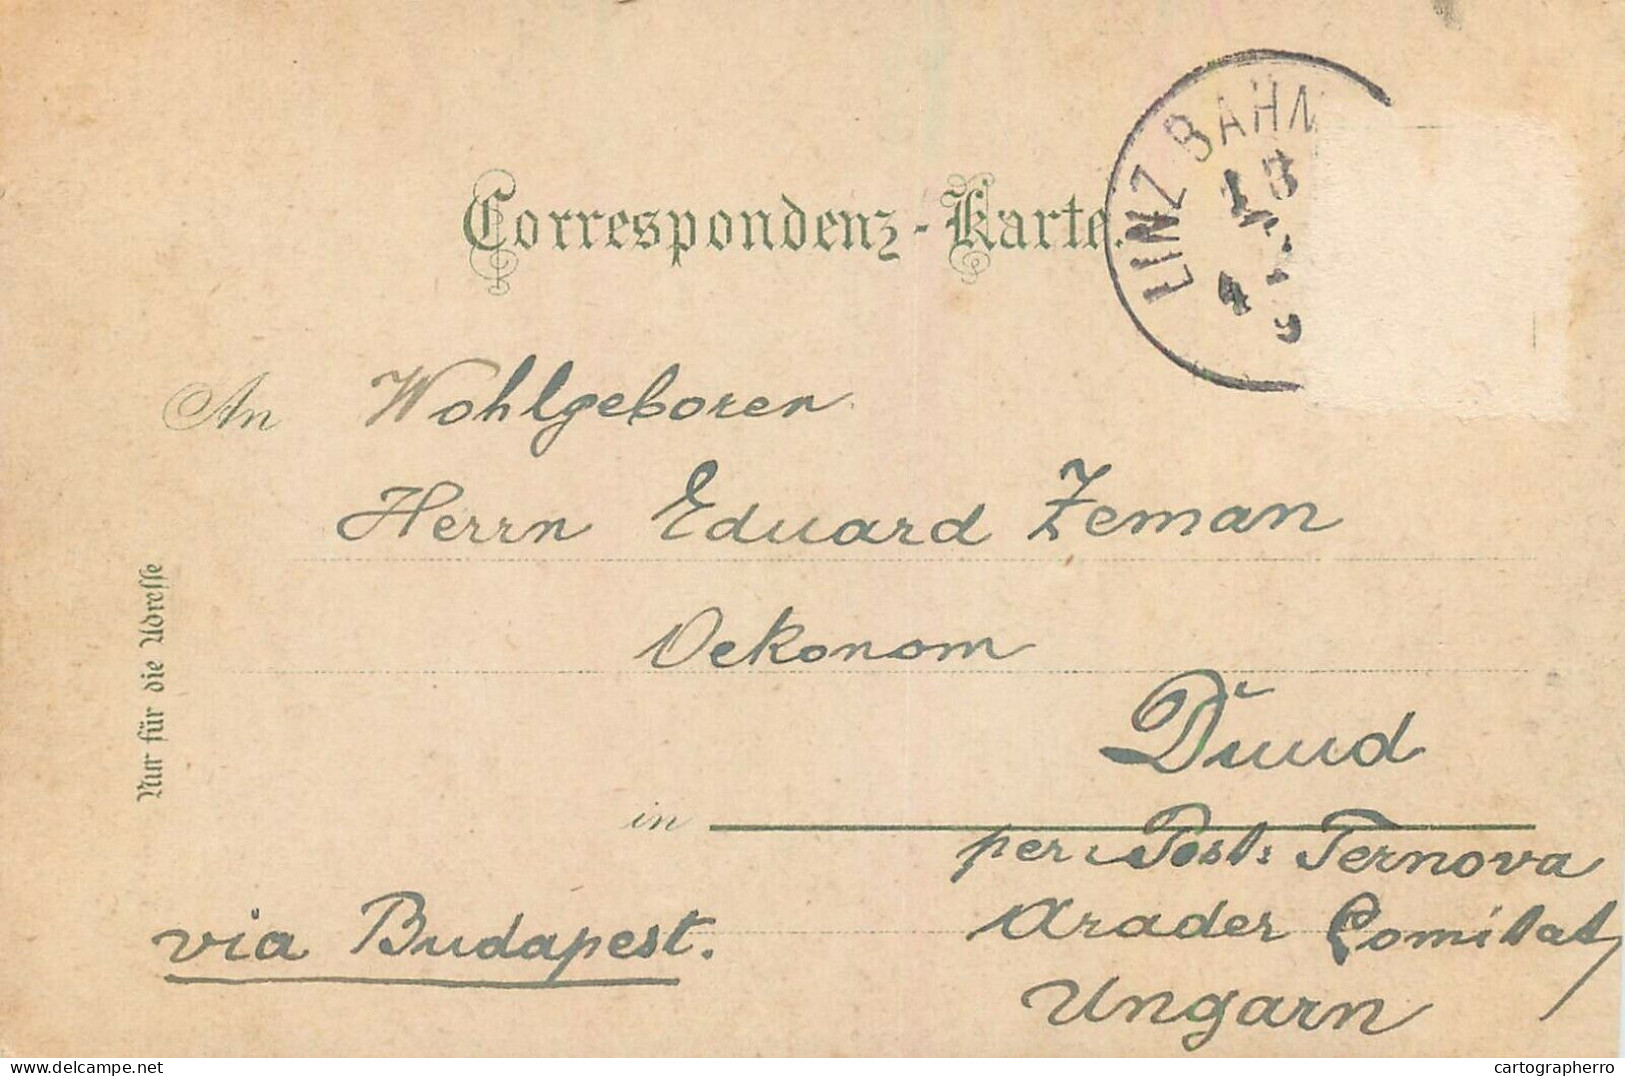 Correspondenz-Karte.
LINZ BAHN
13
4
9
An Wohlgeboren
Herrn Eduard Zeman
Oekonom
Duud
in
per: Post: Ternova
Arader Comitat
Ungarn
via Budapest.
Nur für die Adresse
delcampe.net
cartographerro